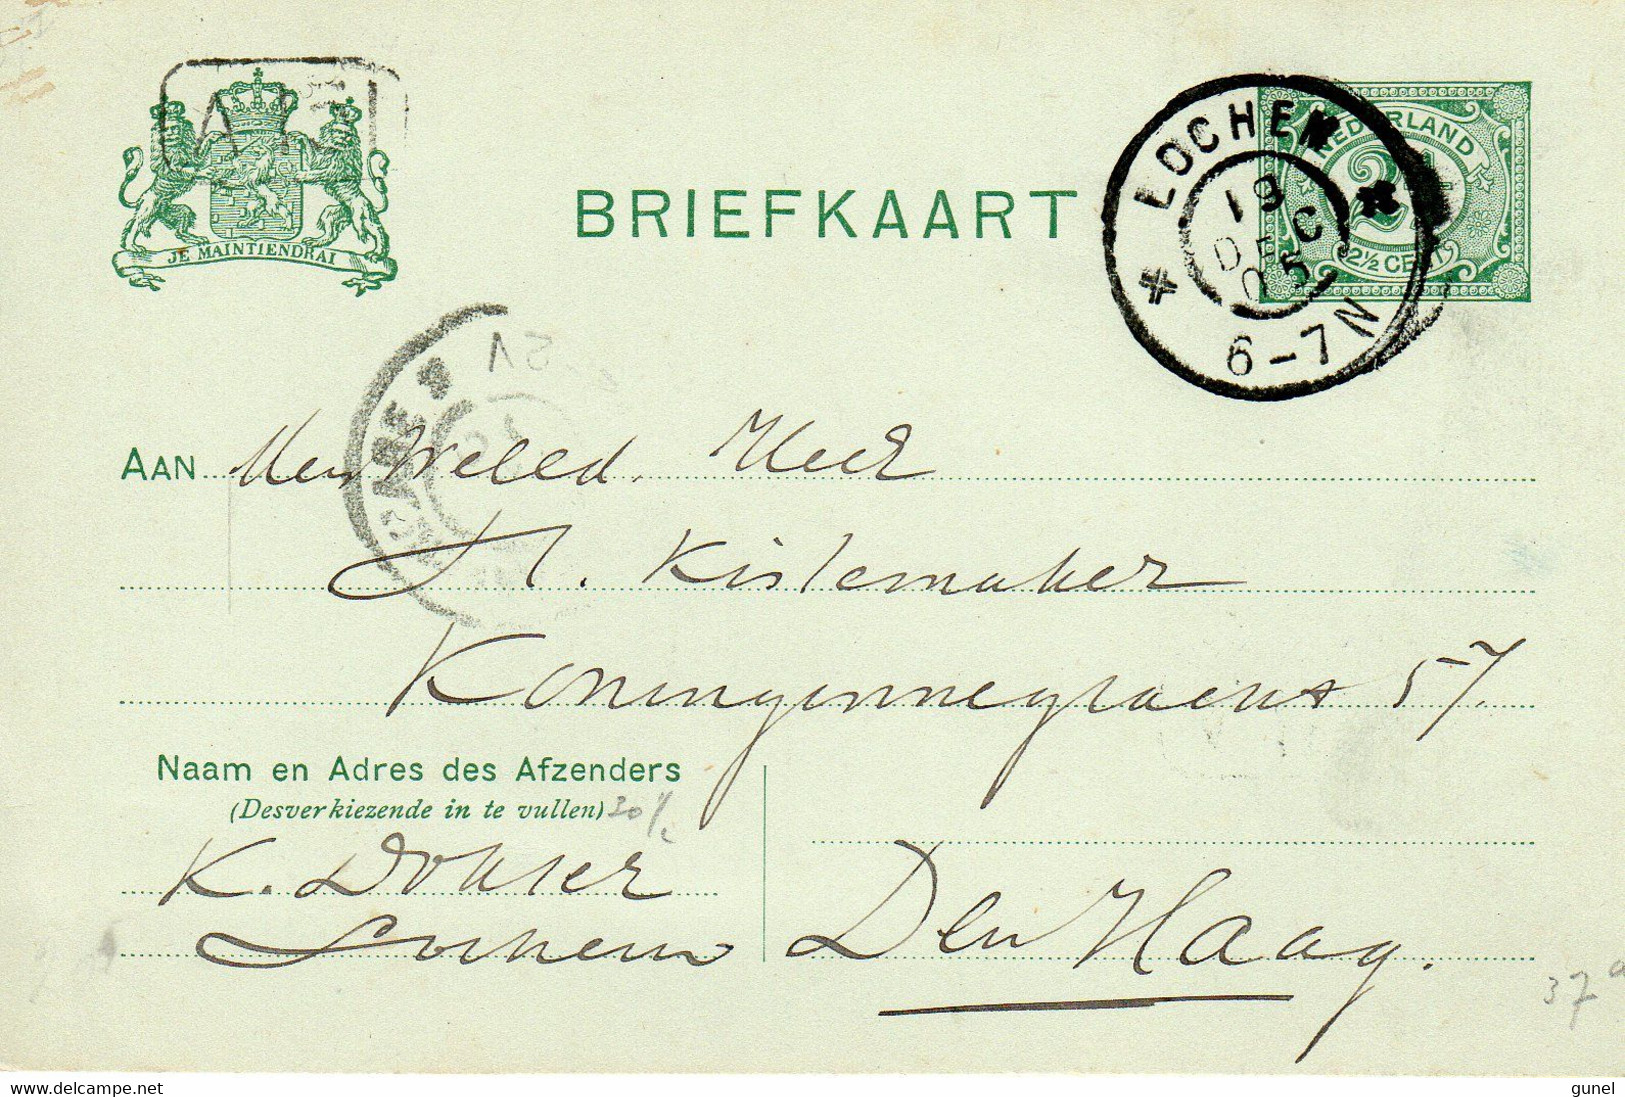 JE MAINTIENDRAI
BRIEFKAART
LOCHEM
19
DEC
05
6-7N
NEDERLAND
2½ CENT
AAN
WelEd. Heer
Kistemaker
Koninginnegracht 57.
Naam en Adres des Afzenders
(Desverkiezende in te vullen)
K. Dokker
Lochem
Den Haag.
37a
www.delcampe.net
gunel